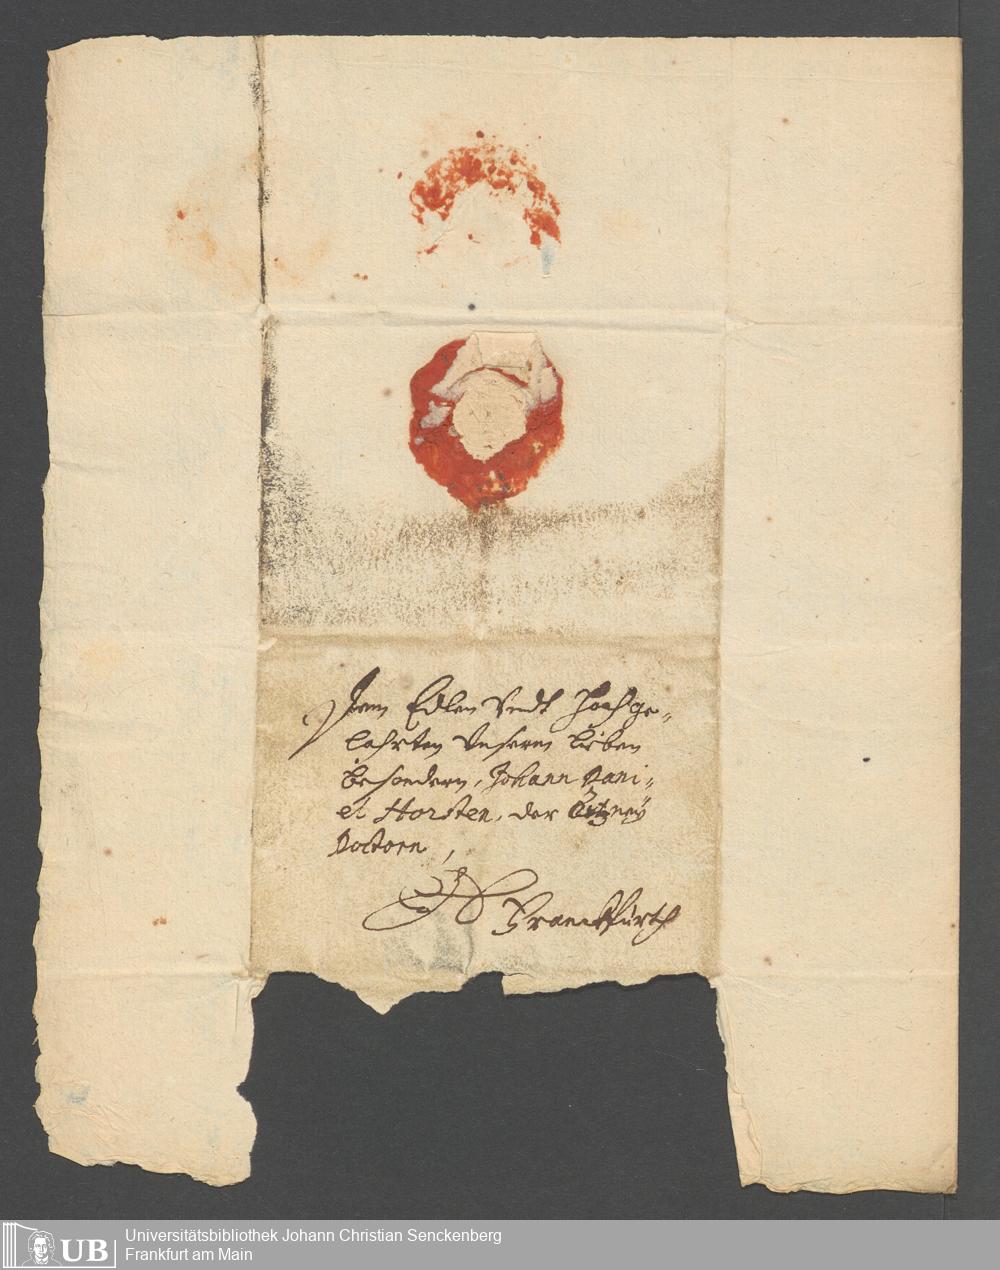 Dem Edlen Vndt Hochge-
lahrten Vnserm Lieben
besondern, Johann Dani-
el Horsten, der Artzney
Doctorn,
Franckfurth
UB
Universitätsbibliothek Johann Christian Senckenberg
Frankfurt am Main